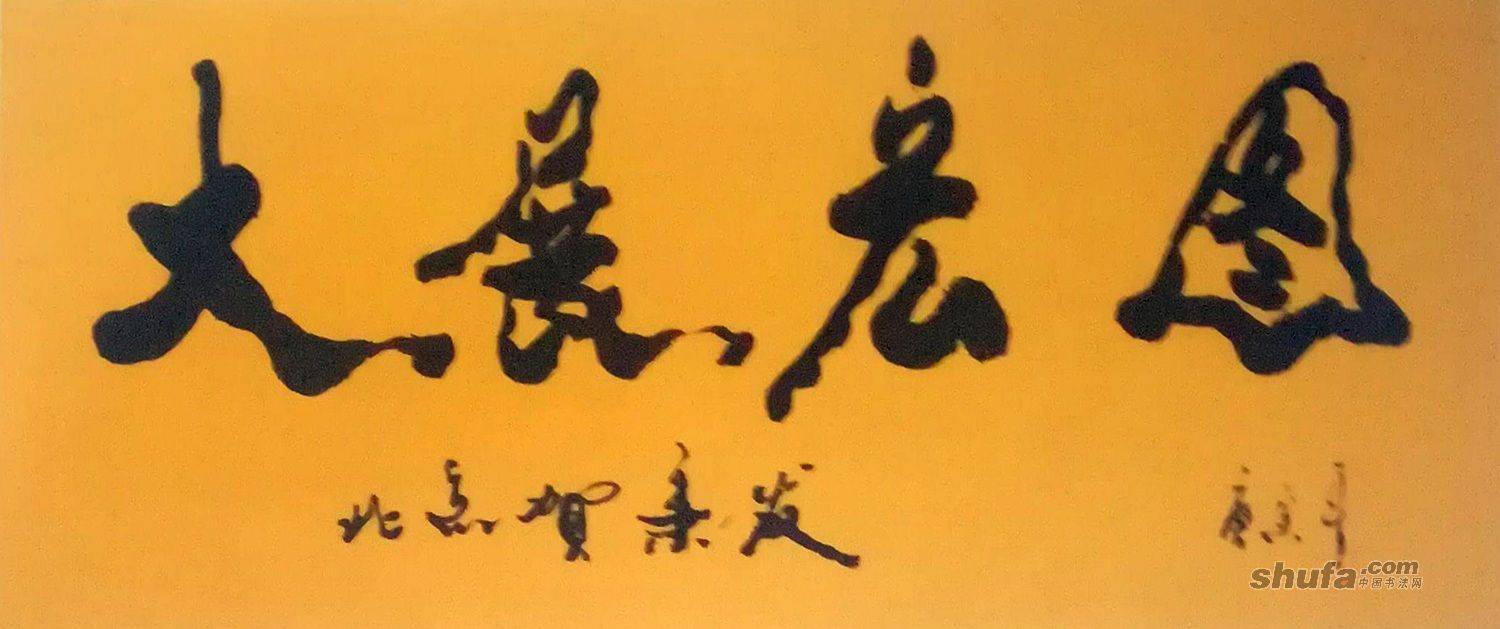 大展宏图
北京贺秉发
庚寅年
shufa.com
中国书法网